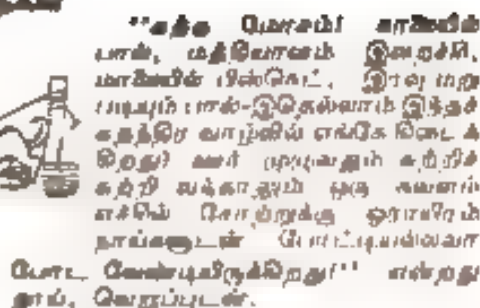 "எந்த
பால், மத்தியானம் இலைச்சி,
மாலையில் பிஸ்கெட், இரவு மறு
படியும் பால்-இதெல்லாம் இந்தச்
சுதந்திர வாழ்வில் எங்கே கிடைக்
கிறது! ஊர் முழுவதும் சுற்றிச்
சுற்றி வந்தாலும் ஒரு கவளம்
எச்சில் சோற்றுக்கு ஓராயிரம்
நாய்களுடன் போட்டியல்லவா
போட வேண்டியிருக்கிறது!" என்றது
நாய், வெறுப்புடன்.